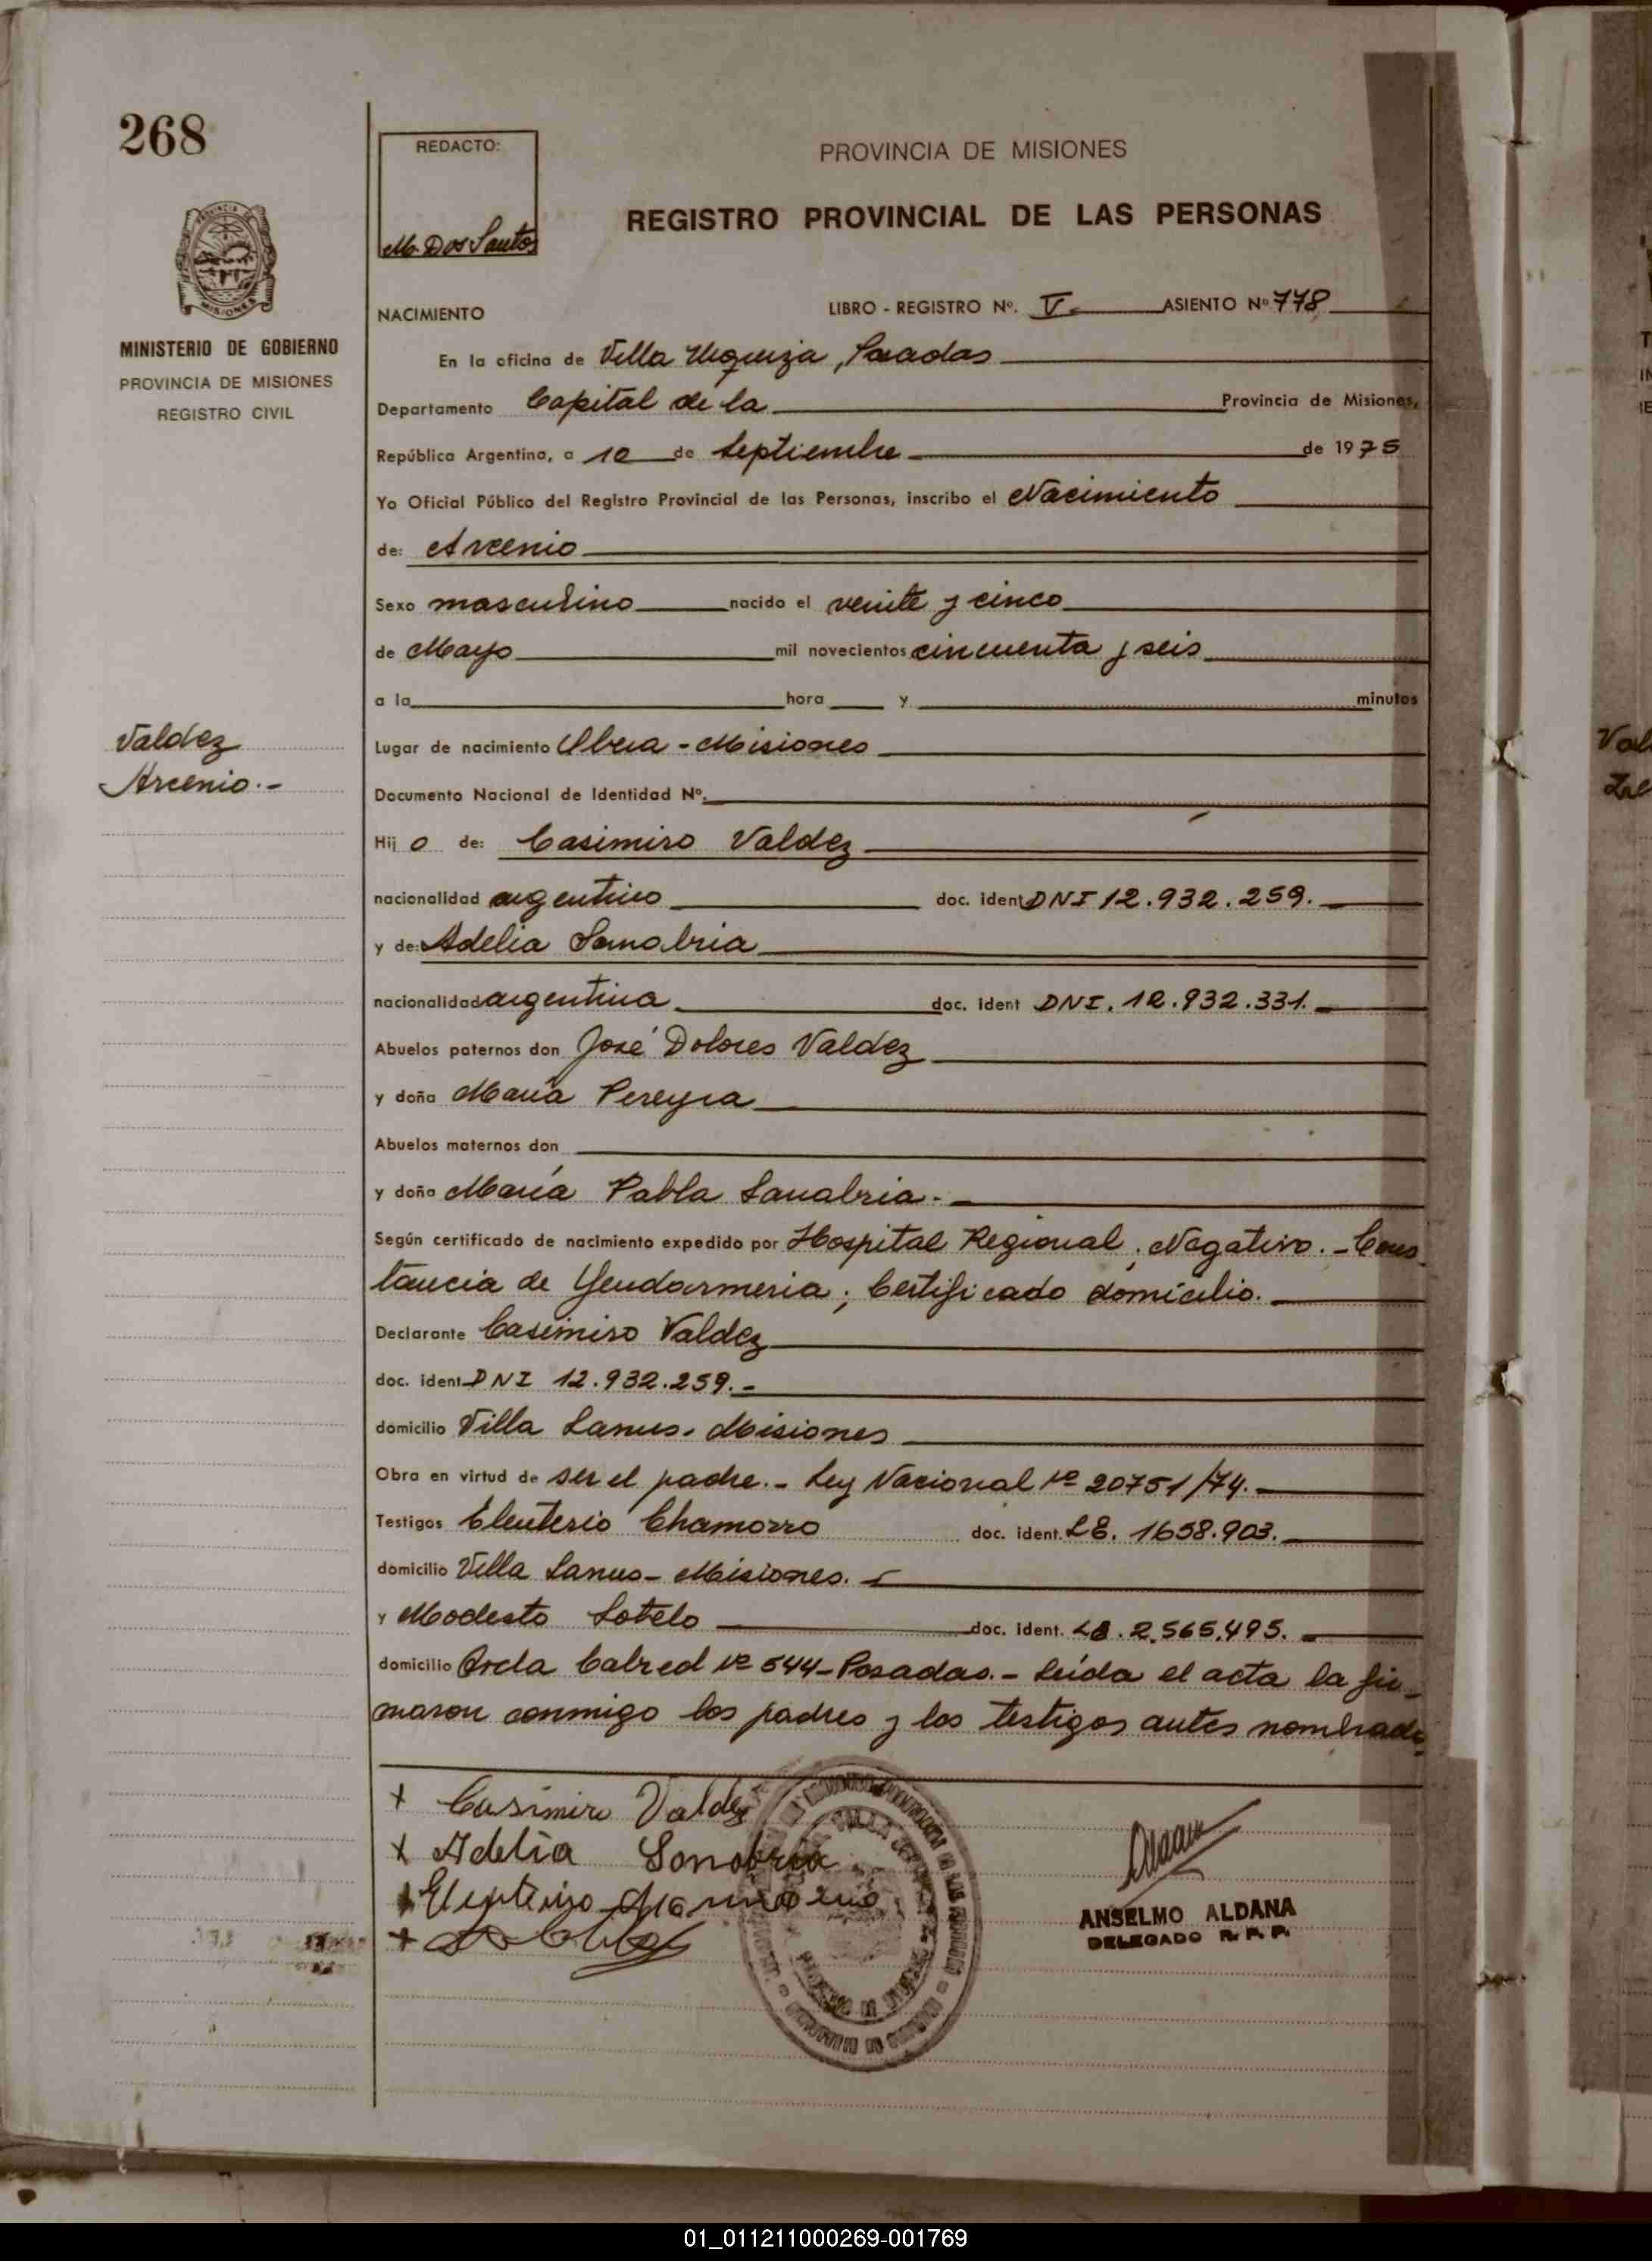 268
REDACTO:
M. Dos Santos
PROVINCIA DE MISIONES
REGISTRO PROVINCIAL DE LAS PERSONAS
MINISTERIO DE GOBIERNO
PROVINCIA DE MISIONES
REGISTRO CIVIL
NACIMIENTO LIBRO - REGISTRO Nº. V.- ASIENTO Nº 778
En la oficina de Villa Urquiza, Posadas
Departamento Capital de la Provincia de Misiones,
República Argentina, a 10 de Septiembre de 1975
Yo Oficial Público del Registro Provincial de las Personas, inscribo el Nacimiento
de: Arcenio
Sexo masculino nacido el veinte y cinco
de Mayo mil novecientos cincuenta y seis
a la hora y minutos
Valdez
Arcenio.-
Lugar de nacimiento Obera - Misiones
Documento Nacional de Identidad Nº.
Hij o de: Casimiro Valdez
nacionalidad argentino doc. ident DNI 12.932.259.
y de: Adelia Sanabria
nacionalidad argentina doc. ident DNI. 12.932.331.
Abuelos paternos don José Dolores Valdez
y doña María Pereyra
Abuelos maternos don
y doña María Pabla Sanabria.-
Según certificado de nacimiento expedido por Hospital Regional, Negativo.- Cons
tancia de Gendarmeria; Certificado domicilio.
Declarante Casimiro Valdez
doc. ident DNI 12.932.259.-
domicilio Villa Lanus. Misiones
Obra en virtud de ser el padre.- Ley Nacional Nº 20751/74.
Testigos Eleuterio Chamorro doc. ident. LE. 1658.903.
domicilio Villa Lanus - Misiones.
y Modesto Sotelo doc. ident. LE. 2.565.495.
domicilio Avda Cabred Nº 544 - Posadas.- Leída el acta la fir-
maron conmigo los padres y los testigos antes nombrados
+ Casimiro Valdez
+ Adelia Sonabria
+
ANSELMO ALDANA
DELEGADO R. P. P.
01_011211000269-001769